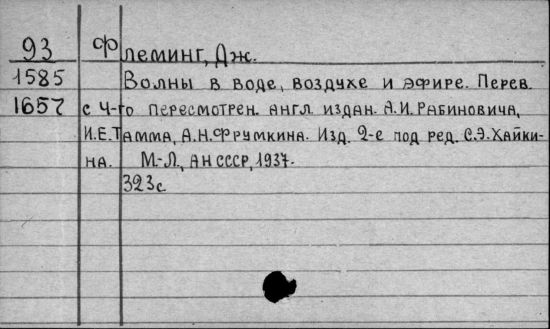 93 Флеминг, Дж.
1585 Волны в воде, воздухе и эфире. Перев.
1657 с 4-го пересмотрен. англ. издан. А.И. Рабиновича,
И.Е. Тамма, А.Н. Фрумкина. Изд. 2-е под ред. С.Э. Хайки-
на. М.-Л., АН СССР, 1937.
323 с.